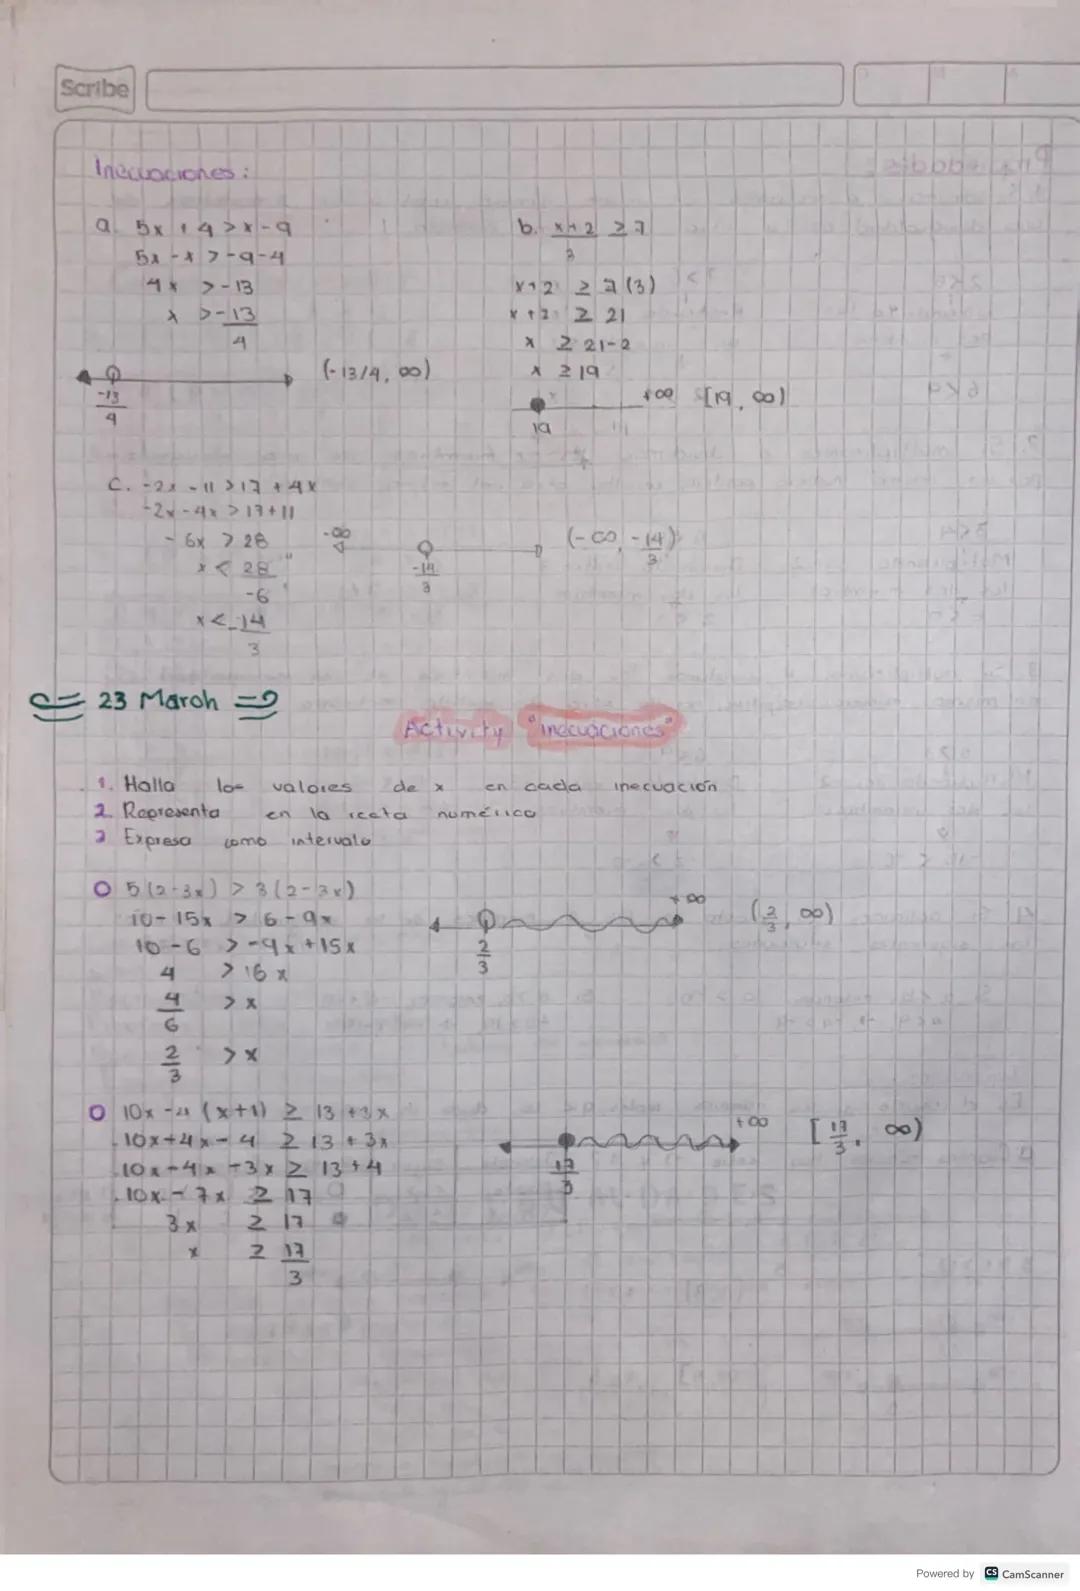 Scribe
Inecuaciones:
a. 5x + 4 > x - 9
5x - x > -9 - 4
4x > -13
x > -13
4
-13
4
(-13/4, ∞)
b. x+2 ≥ 7
3
x+2 ≥ 7(3)
x+2 ≥ 21
x ≥ 21-2
x ≥ 19
+∞ [19, ∞)
19
c. -2x - 11 > 17 + 4x
-2x - 4x > 17+11
-6x > 28
x < 28
-6
x < -14
3
-∞
-14
3
(-∞, -14)
3
23 March
Activity "inecuaciones"
1. Halla los valores de x en cada inecuación
2. Representa en la recta numérica
3 Expresa como intervalo
5(2-3x) > 3(2-3x)
10-15x > 6-9x
10-6 > -9x+15x
4 > 16x
4 > x
6
2 > x
3
+∞
2
3
(2/3, ∞)
10x -4 (x+1) ≥ 13 +3x
10x+4x-4 ≥ 13 + 3x
10x-4x-3x ≥ 13+4
10x - 7x ≥ 17
3x ≥ 17
x ≥ 17
3
+∞
17
3
[17/3, ∞)
Powered by CS CamScanner